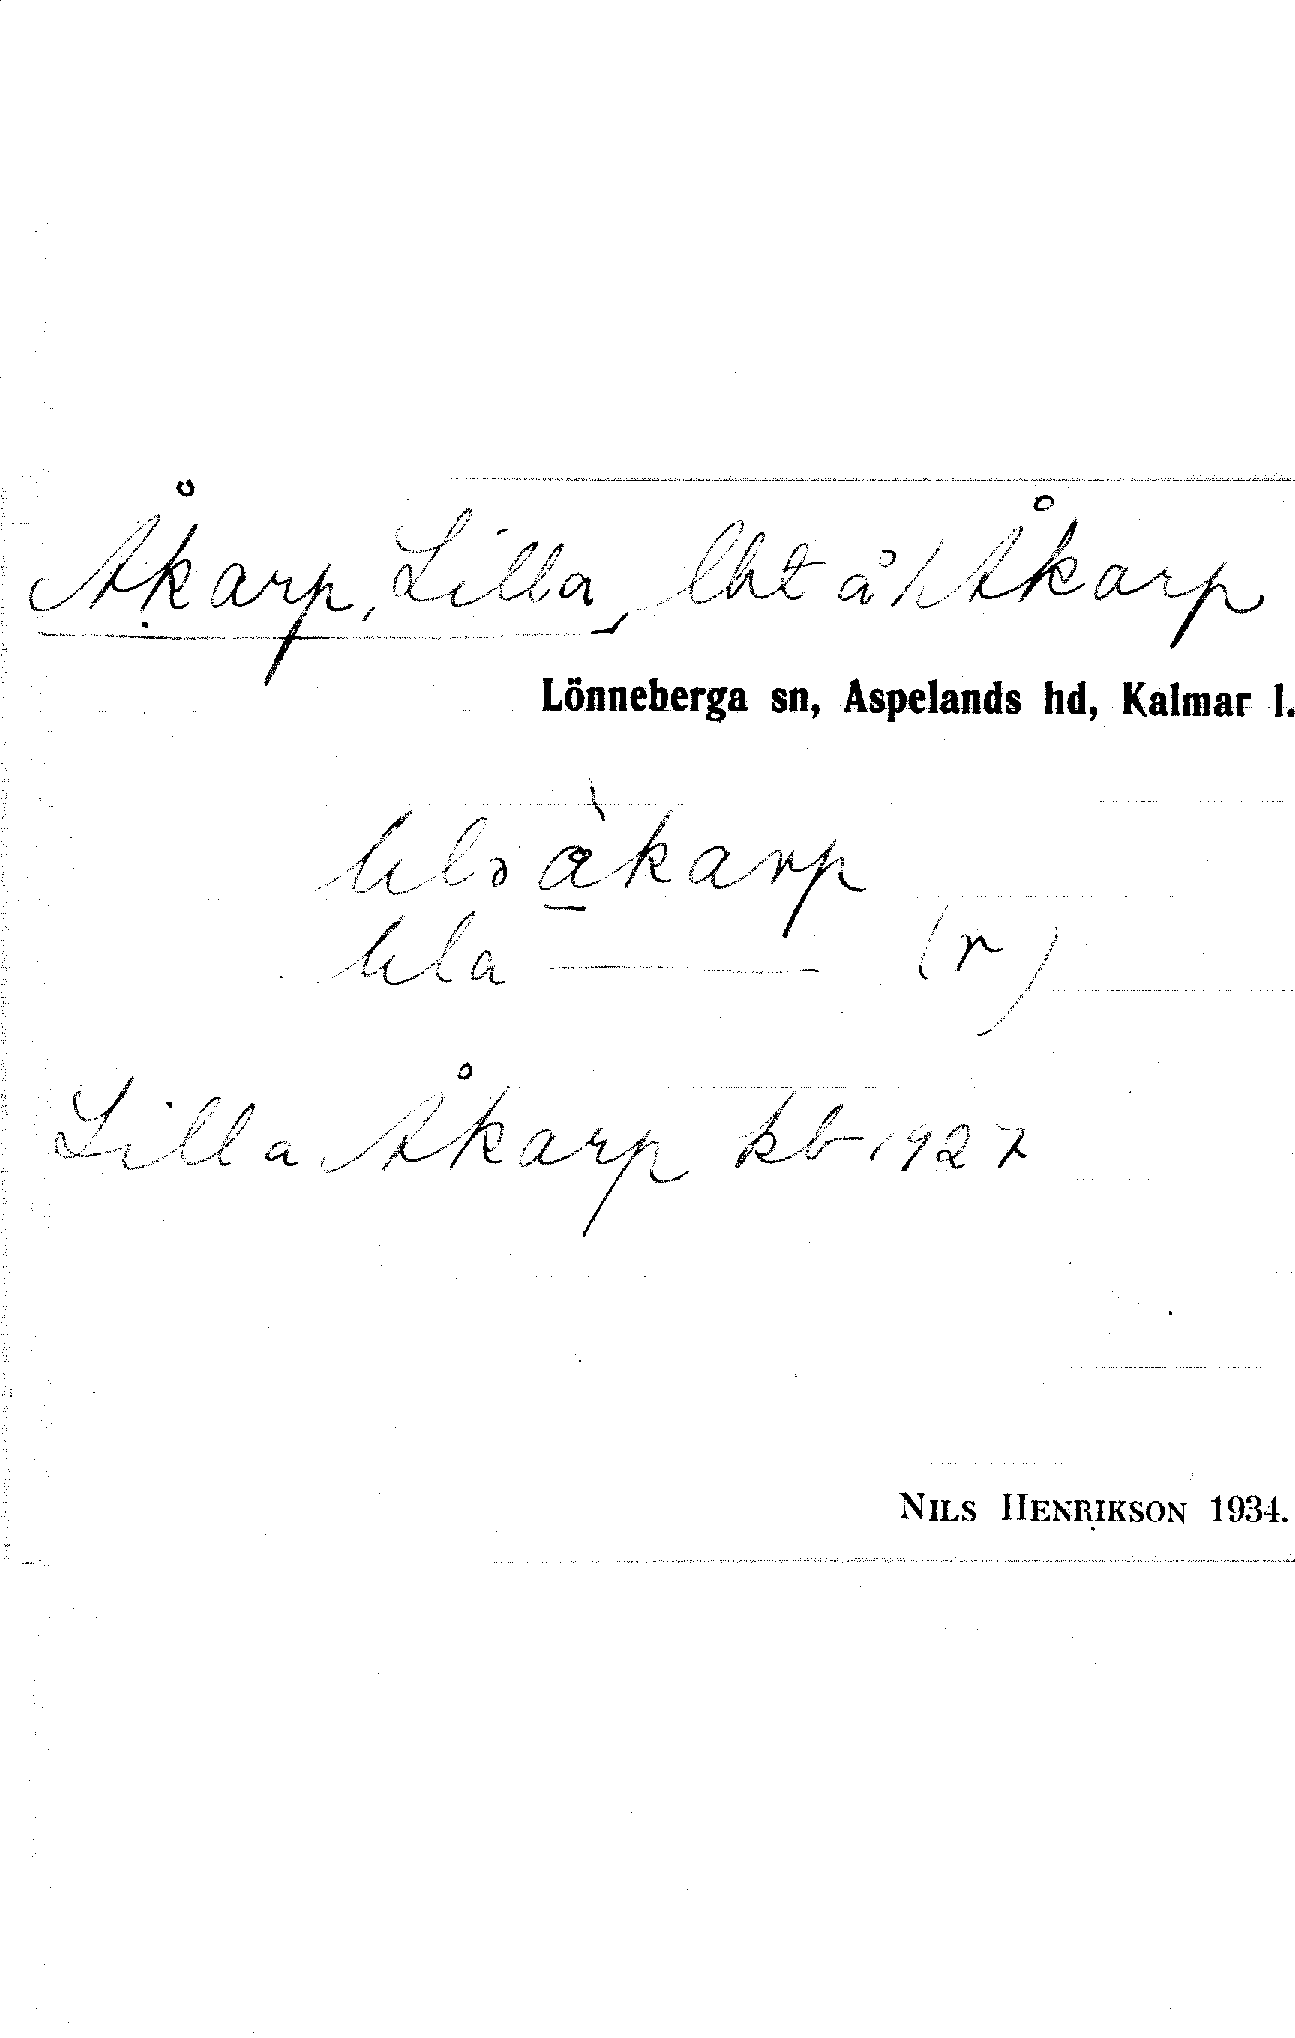 Åkarp, Lilla, lht å 1 Åkarp
Lönneberga sn, Aspelands hd, Kalmar l.
lila
Lilla Åkarp kb 1927
NILS HENRIKSON 1934.